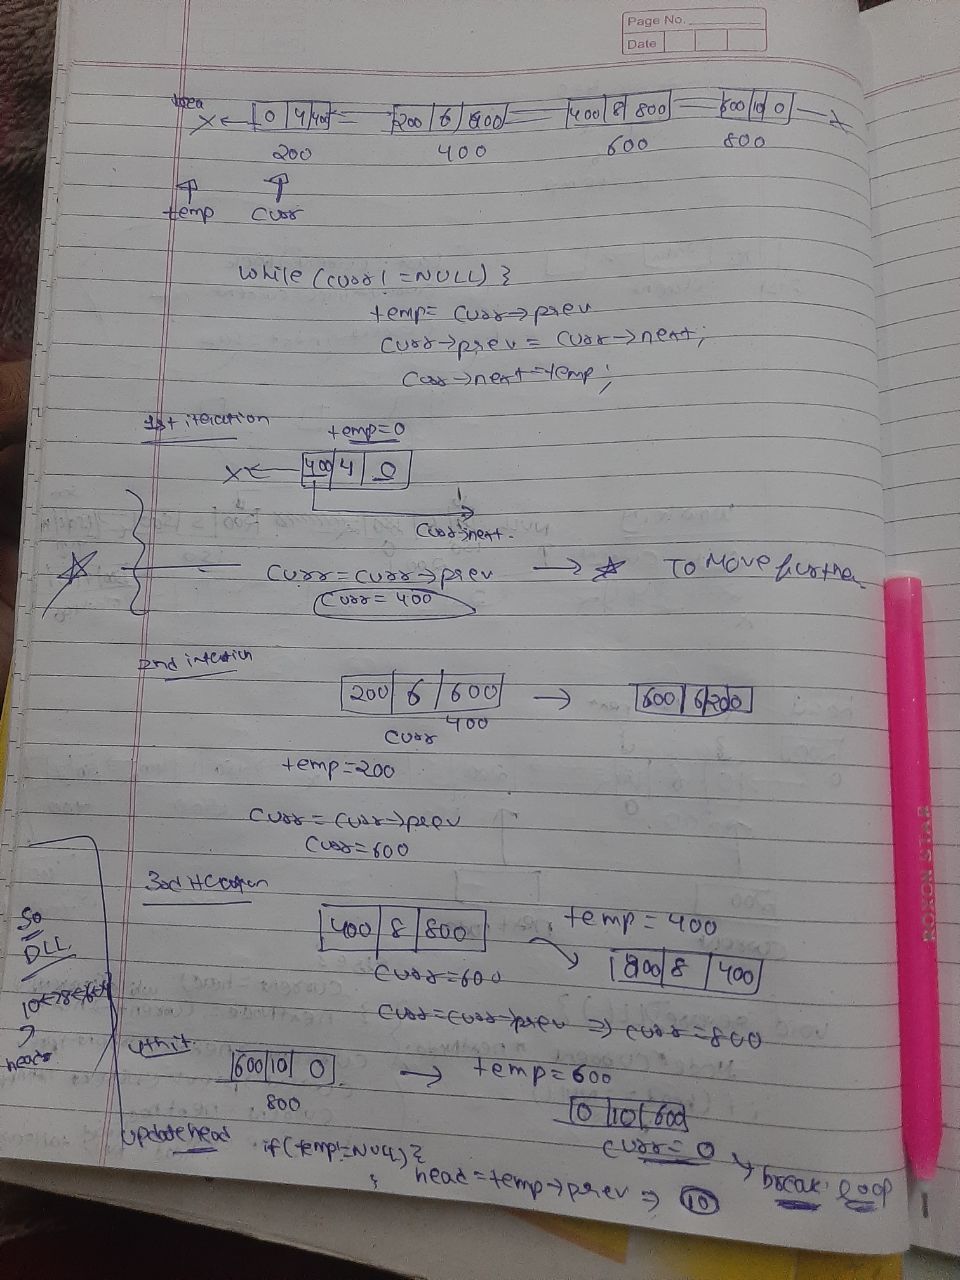 Page No.
Date
Idea
X ← 0 | 4 | 400 = 200 | 6 | 600 = 400 | 8 | 800 = 600 | 10 | 0 → X
200 400 600 800
temp curr
while (curr != NULL) {
temp = curr→prev
curr→prev = curr→next;
curr→next = temp;
1st iteration
temp=0
X ← 400 | 4 | 0
curr→next.
curr = curr→prev → ☆ To Move further
curr = 400
2nd iteration
200 | 6 | 600 → 600 | 6 | 200
400
curr
temp=200
curr = curr→prev
curr=600
3rd iteration
400 | 8 | 800 temp = 400
800 | 8 | 400
curr=600
curr=curr→prev ⇒ curr=800
So
DLL
head
4th it
600 | 10 | 0 → temp=600
800
0 | 10 | 600
curr = 0 → break loop
update head if(temp!=NULL) {
head = temp→prev ⇒ 10
}